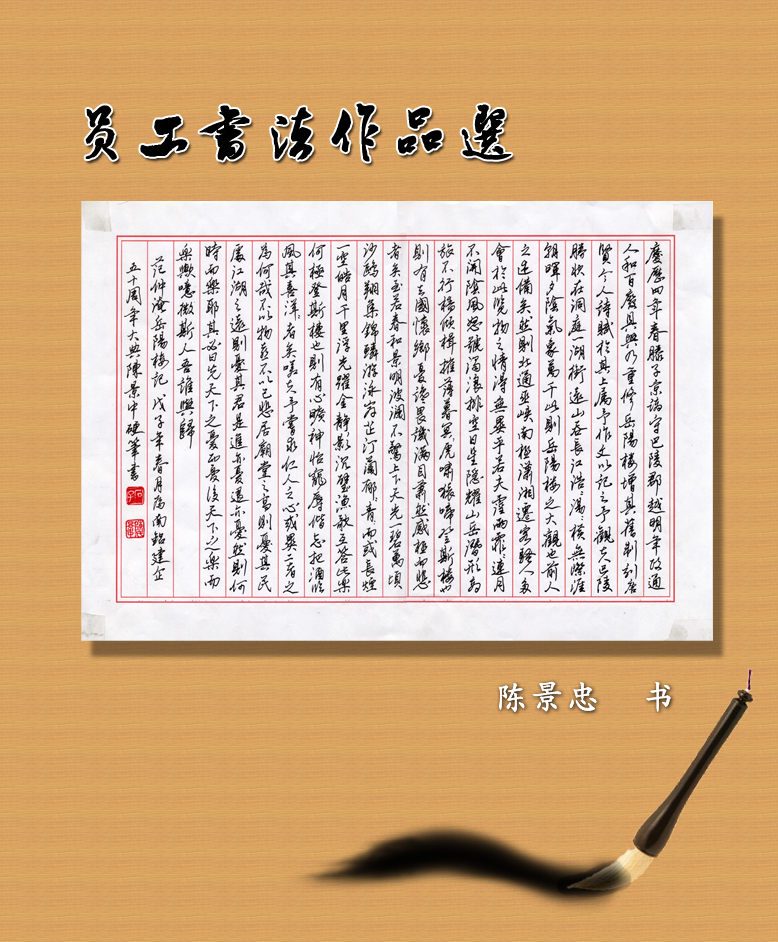 员工書法作品選
慶歷四年春滕子京謫守巴陵郡越明年政通
人和百廢具興乃重修岳陽樓增其舊制刻唐
賢今人詩賦於其上屬予作文以記之予觀夫巴陵
勝狀在洞庭一湖銜遠山吞長江浩浩湯湯橫無際涯
朝暉夕陰氣象萬千此則岳陽樓之大觀也前人
之述備矣然則北通巫峽南極瀟湘遷客騷人多
會於此覽物之情得無異乎若夫霪雨霏霏連月
不開陰風怒號濁浪排空日星隱耀山岳潛形商
旅不行檣傾楫摧薄暮冥冥虎嘯猿啼登斯樓也
則有去國懷鄉憂讒畏譏滿目蕭然感極而悲
者矣至若春和景明波瀾不驚上下天光一碧萬頃
沙鷗翔集錦鱗游泳岸芷汀蘭郁郁青青而或長煙
一空皓月千里浮光躍金靜影沉璧漁歌互答此樂
何極登斯樓也則有心曠神怡寵辱偕忘把酒臨
風其喜洋洋者矣嗟夫予嘗求仁人之心或異二者之
為何哉不以物喜不以己悲居廟堂之高則憂其民
處江湖之遠則憂其君是進亦憂退亦憂然則何
時而樂耶其必曰先天下之憂而憂後天下之樂而
樂歟噫微斯人吾誰與歸
范仲淹岳陽樓記 戊子年春月為南鋁建企
五十周年大典陳景忠硬筆書
陈景忠 书